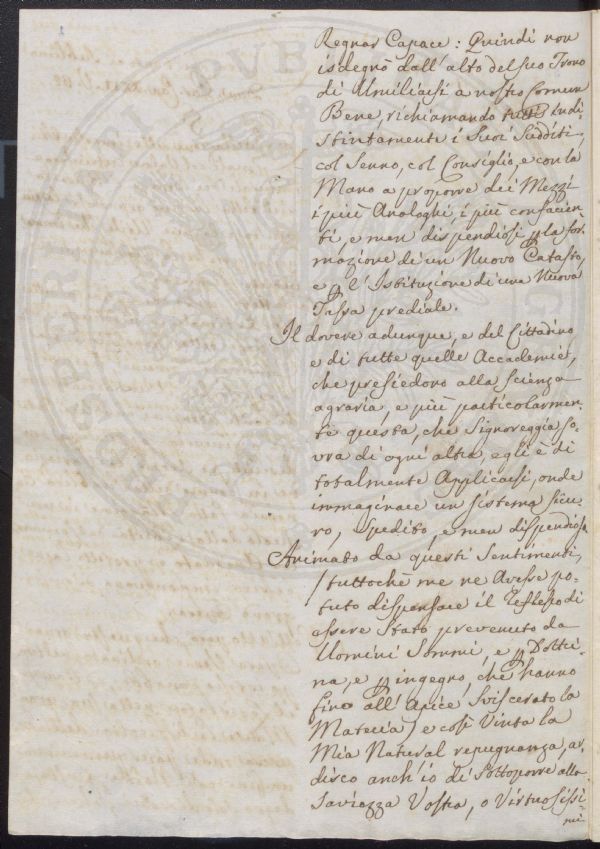 Regnar Capace: Quindi non
isdegnò dall'alto del suo Trono
di Umiliarsi a nostro Comun
Bene, richiamando tutti Indi-
stintamente i Suoi Sudditi,
col Senno, col Consiglio, e con la
Mano a proporre dei Mezzi
i più Analoghi, i più confacien-
ti, e men dispendiosi p la for-
mazione di un Nuovo Catasto,
e p l'Istituzione di una Nuova
Tassa prediale.
Il dovere adunque, e del Cittadino
e di tutte quelle Accademie,
che presiedono alla scienza
agraria, e più particolarmen-
te questa, che Signoreggia so-
vra di ogni altra, egli è di
totalmente Applicarsi, onde
immaginare un sistema sicu-
ro, spedito, e men dispendioso
Animato da questi Sentimenti,
/ tuttochè me ne Avesse po-
tuto dispensare il Reflesso di
essere Stato prevenuto da
Uomini Sommi, e p Dottri-
na, e p ingegno, che hanno
fino all'Apice Sviscerato la
Materia / e così Vinta la
Mia Natural repugnanza, ar-
disco anch'io di Sottoporre alla
Saviezza Vostra, o Virtuosissi-
mi